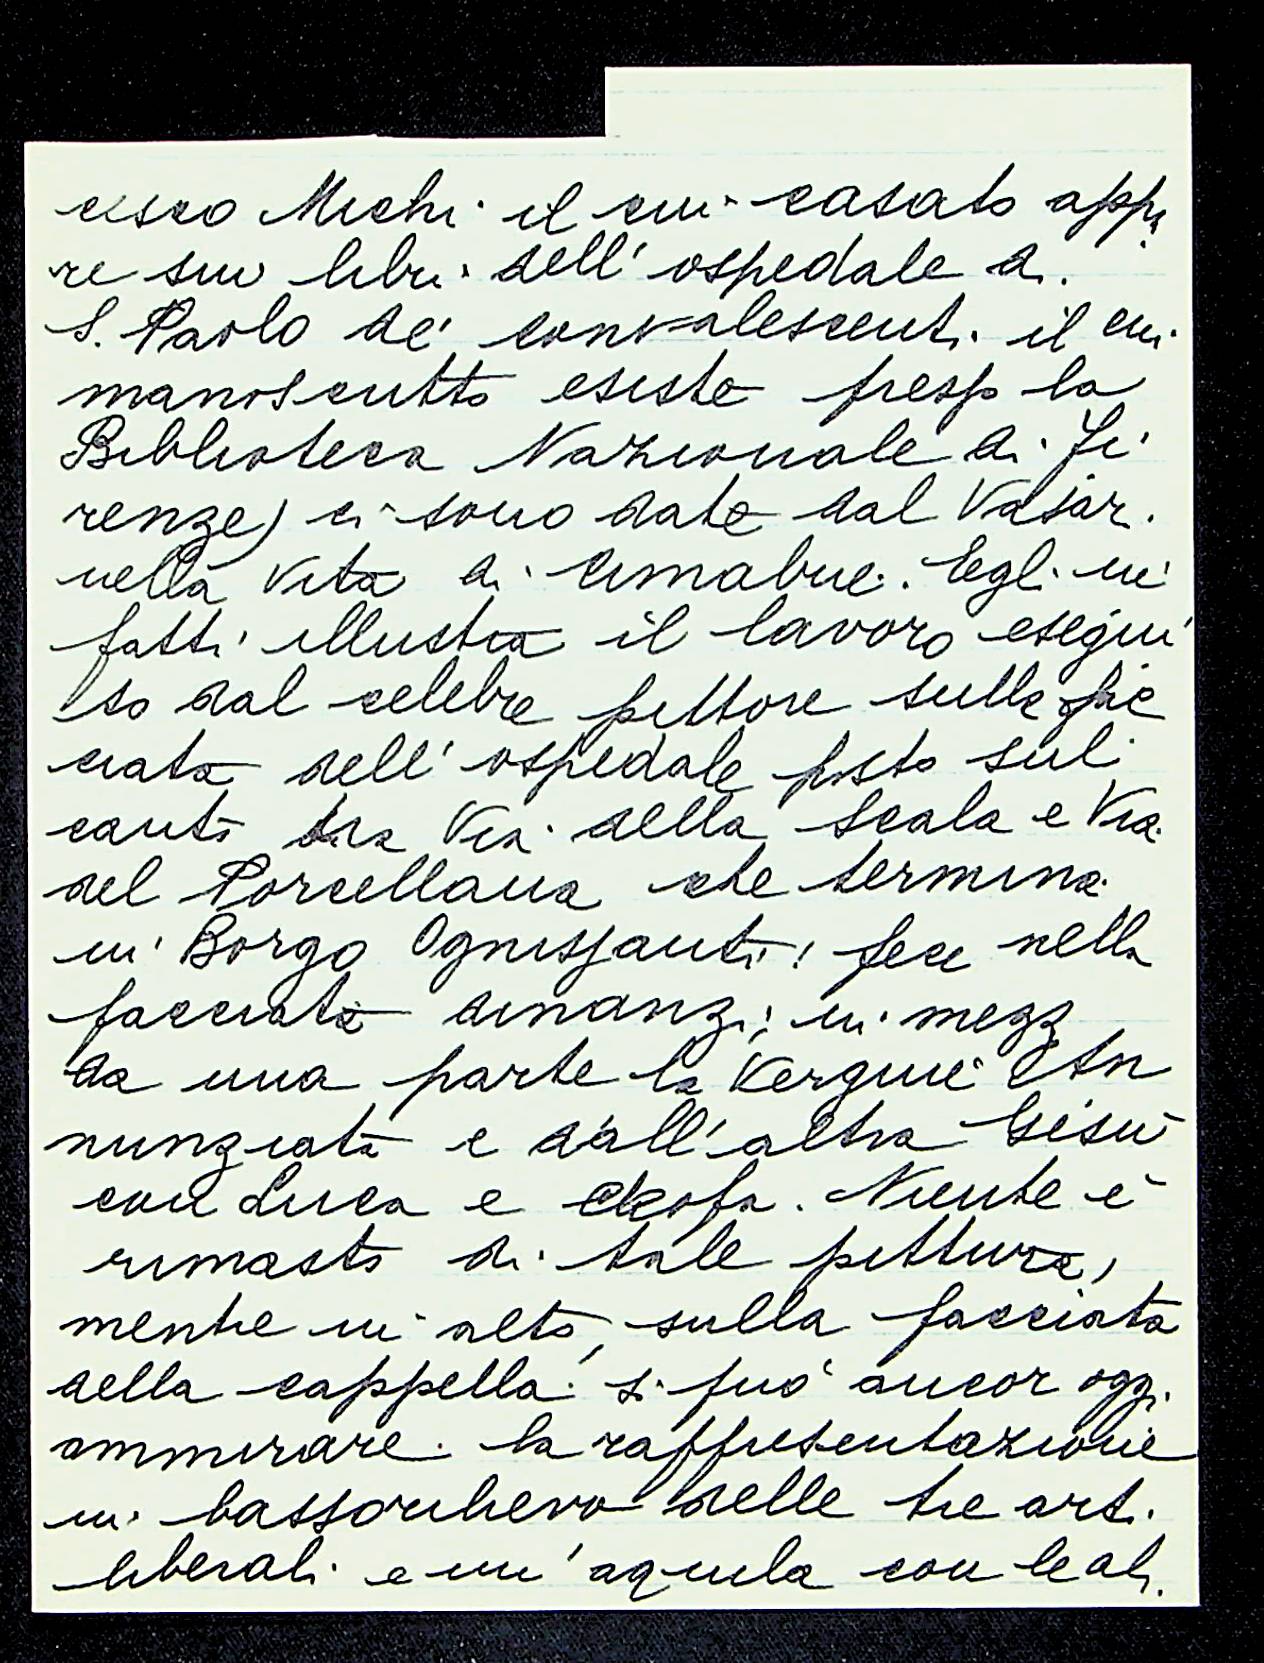 cesco Michi il cui casato appa
re sui libri dell' ospedale di
S. Paolo de' convalescenti il cui
manoscritto esiste presso la
Biblioteca Nazionale di Fi
renze) ci sono date dal Vasari
nella Vita di Cimabue. Egli in
fatti illustra il lavoro esegui
to dal celebre pittore sulla fac
ciata dell' ospedale posto sul
canto tra Via della Scala e Via
del Porcellana che termina
in Borgo Ognissanti: fece nella
facciata dinanzi; in mezzo
da una parte la Vergine An
nunziata e dall' altra Gesù
con Luca e Cleofa. Niente è
rimasto di tale pittura,
mentre in alto, sulla facciata
della cappella si può ancor oggi
ammirare la rappresentazione
in bassorilievo delle tre arti
liberali e un' aquila con le ali